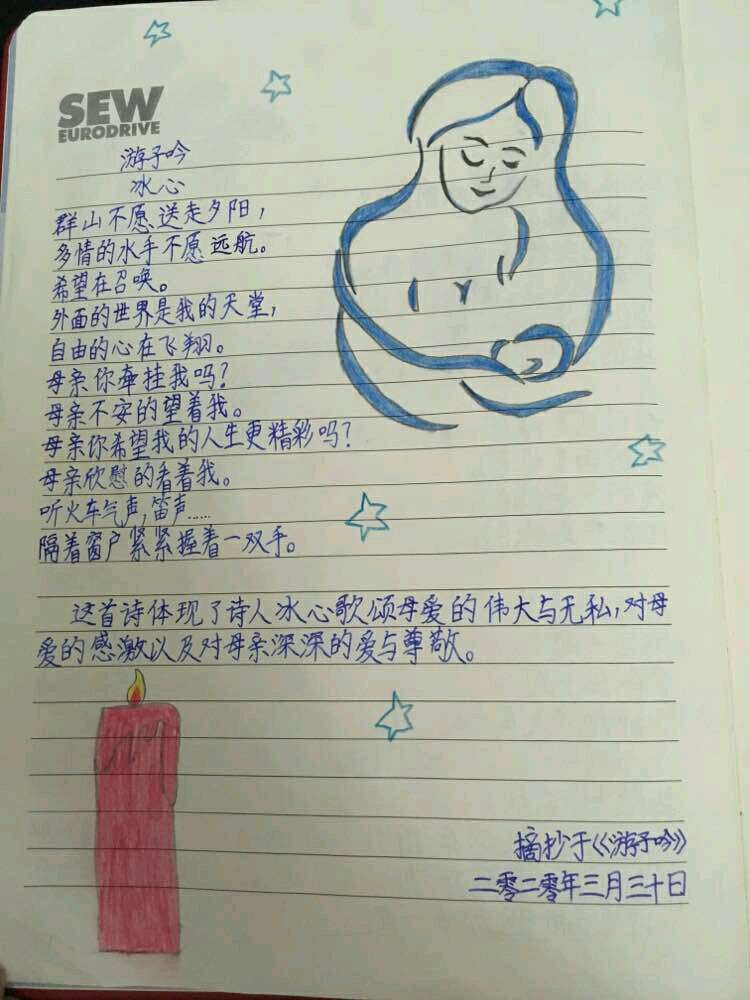 SEW
EURODRIVE
游子吟
冰心
群山不愿送走夕阳，
多情的水手不愿远航。
希望在召唤。
外面的世界是我的天堂，
自由的心在飞翔。
母亲你牵挂我吗？
母亲不安的望着我。
母亲你希望我的人生更精彩吗？
母亲欣慰的看着我。
听火车气声，笛声……
隔着窗户紧紧握着一双手。
这首诗体现了诗人冰心歌颂母爱的伟大与无私，对母
爱的感激以及对母亲深深的爱与尊敬。
摘抄于《游子吟》
二零二零年三月三十日